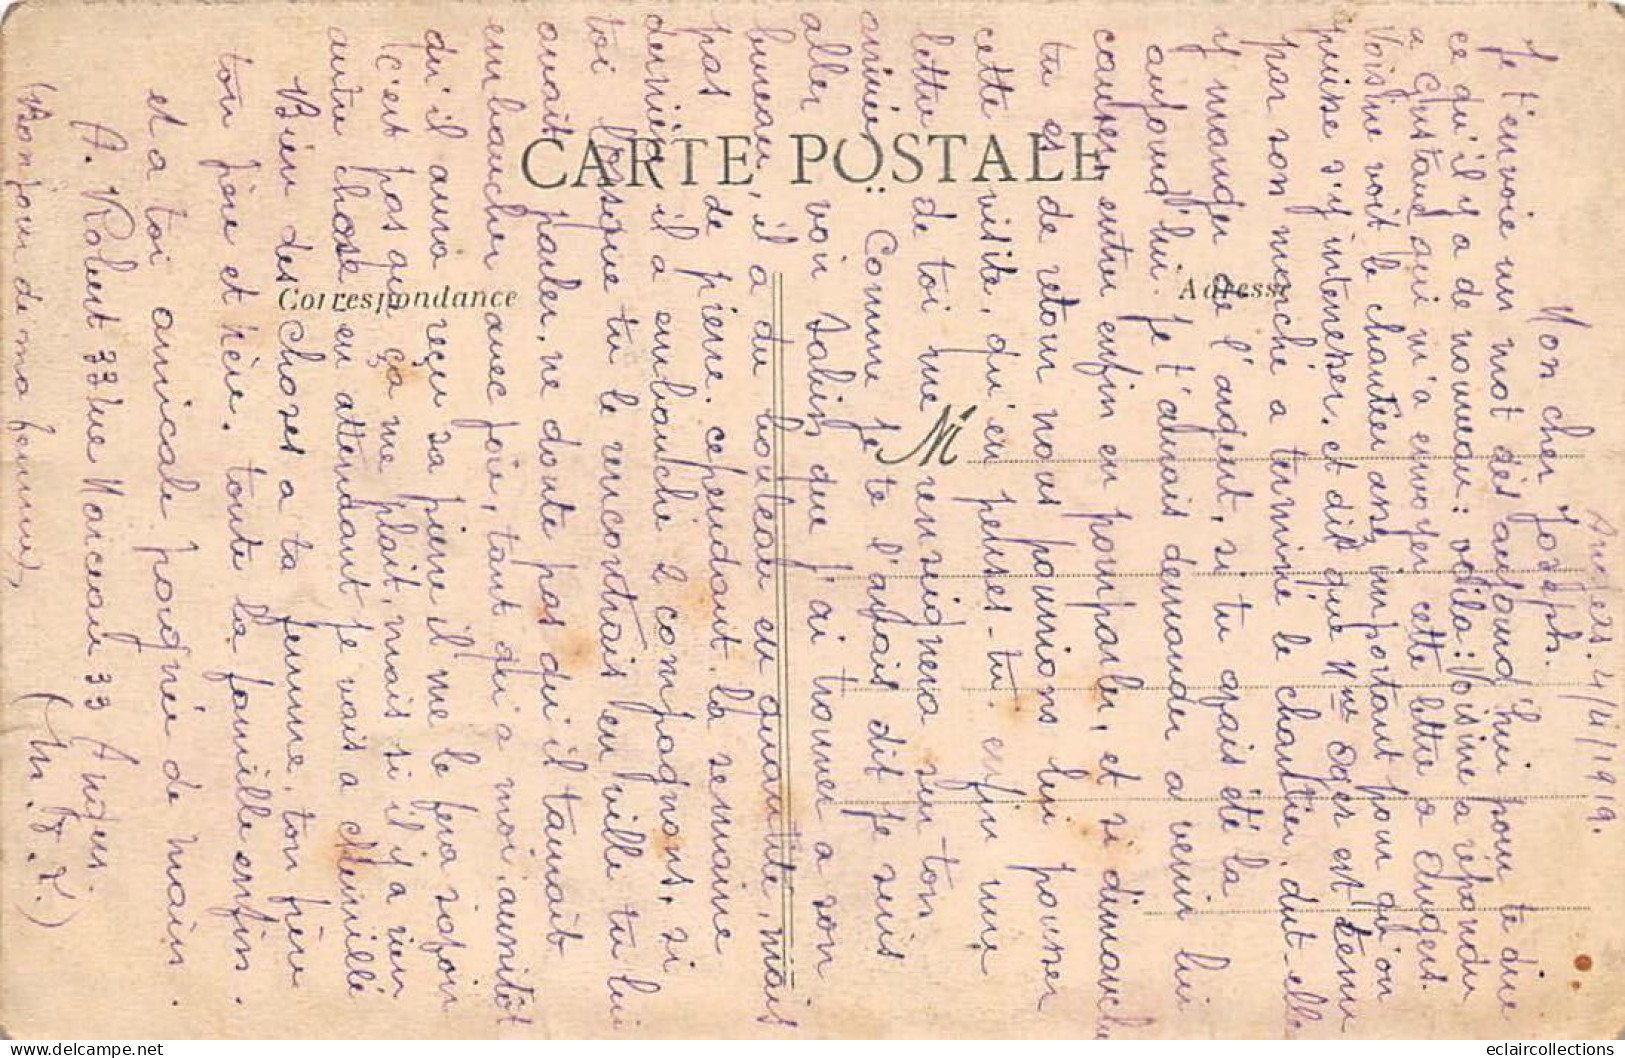 Angers. 4/4/1919.
Mon cher Joseph.
Je t'envoie un mot dès aujourd'hui pour te dire
ce qu'il y a de nouveau: voila: Voisine a répondu
a Gustave qui m'a envoyer cette lettre a Angers.
Voisine voit le chantier assez important pour qu'on
puisse s'y intéresser. et dit que Mme Oger est tenu
par son marché a terminé le chantier. dut-elle
y manger de l'argent, si tu avais été la
aujourd'hui je t'aurais demander a venir lui
causer, entre enfin en pourparler, et si dimanche
tu es de retour nous pourrions lui pousser
cette visite, qu'en penses-tu. enfin une
lettre de toi me renseignera sur ton
arrivée. Comme je te l'avais dit je suis
aller voir Salin que j'ai trouver a son
bureau, il a du bouleau en quantité, mais
pas de pierre. cependant la semaine
dernière il a embauché 2 compagnons, si
toi lorsque tu le rencontrais en ville tu lui
aurait parler, ne doute pas qu'il t'aurait
embaucher avec joie, tant qu'a moi, aussitôt
qu'il aura reçu sa pierre il me le fera savoir
c'est pas que ça me plait, mais si il y a rien
autre chose en attendant je vais a Chemillé
Bien des choses a ta femme, ton père
ton père et mère. toute la famille enfin.
et a toi amicale poignée de main.
A. Robert 33 rue Marceau 33 Angers.
(Bonjour de ma femme), (M. F. L.)
CARTE POSTALE
Correspondance
Adresse
M
eclaircollections
delcampe.net